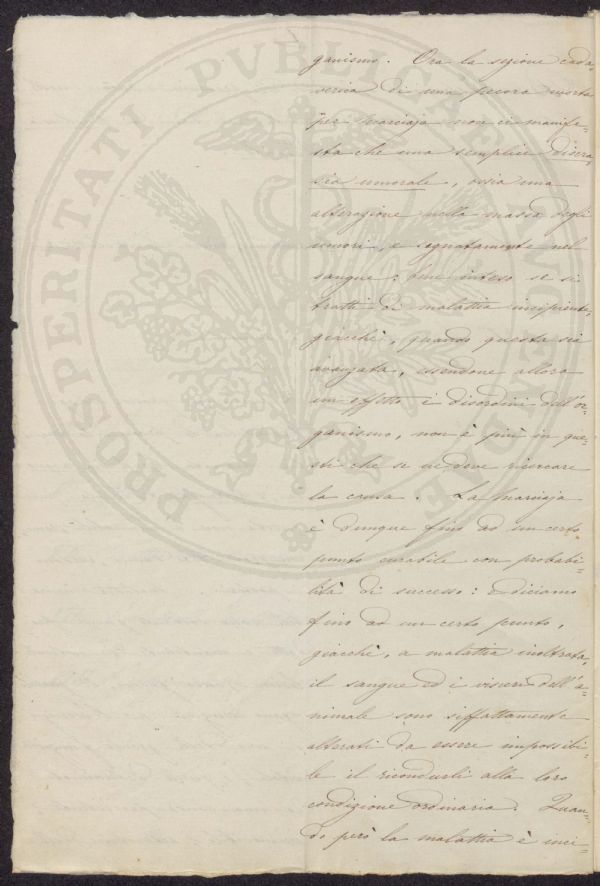 ganismo. Ora la sezione cada-
verica di una pecora morta
per marciaja non ci manife-
sta che una semplice discra-
sia umorale, ossia una
alterazione nella massa degli
umori, e segnatamente nel
sangue: bene inteso se si
tratti di malattia incipiente,
giacchè, quando questa sia
avanzata, essendone allora
un effetto i disordini dell'or-
ganismo, non è più in que-
sti che se ne deve ricercare
la causa. La marciaja
è dunque fino ad un certo
punto curabile con probabi-
lità di successo: e diciamo
fino ad un certo punto,
giacchè, a malattia inoltrata,
il sangue ed i visceri dell'a-
nimale sono siffattamente
alterati da essere impossibi-
le il ricondurli alla loro
condizione ordinaria. Quan-
do però la malattia è inci-
PROSPERITATI PVBLICAE AVGENDAE